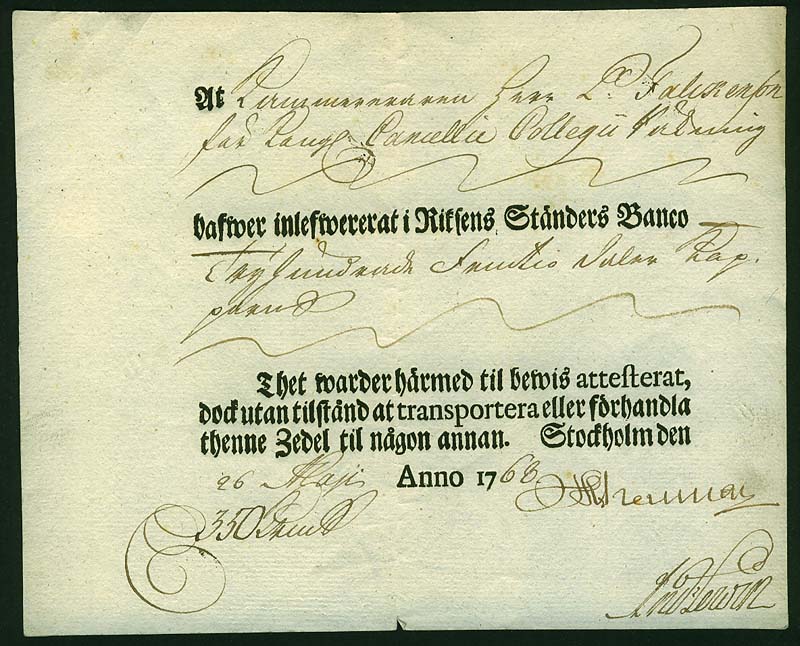 At Kammereraren Herr L: Falckenson
för Kongl. Cancellie Collegii Räkning
hafwer inlefwererat i Riksens Ständers Banco
Tryhundrade Femtio Daler Kop-
parm
Thet warder härmed til bewis attesterat,
dock utan tilstånd at transportera eller förhandla
thenne Zedel til någon annan. Stockholm den
26 Maji Anno 1768
350